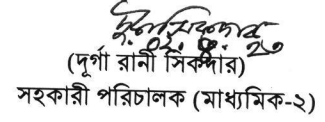 ০২.৪.২৩
(দূর্গা রানী সিকদার)
সহকারী পরিচালক (মাধ্যমিক-২)